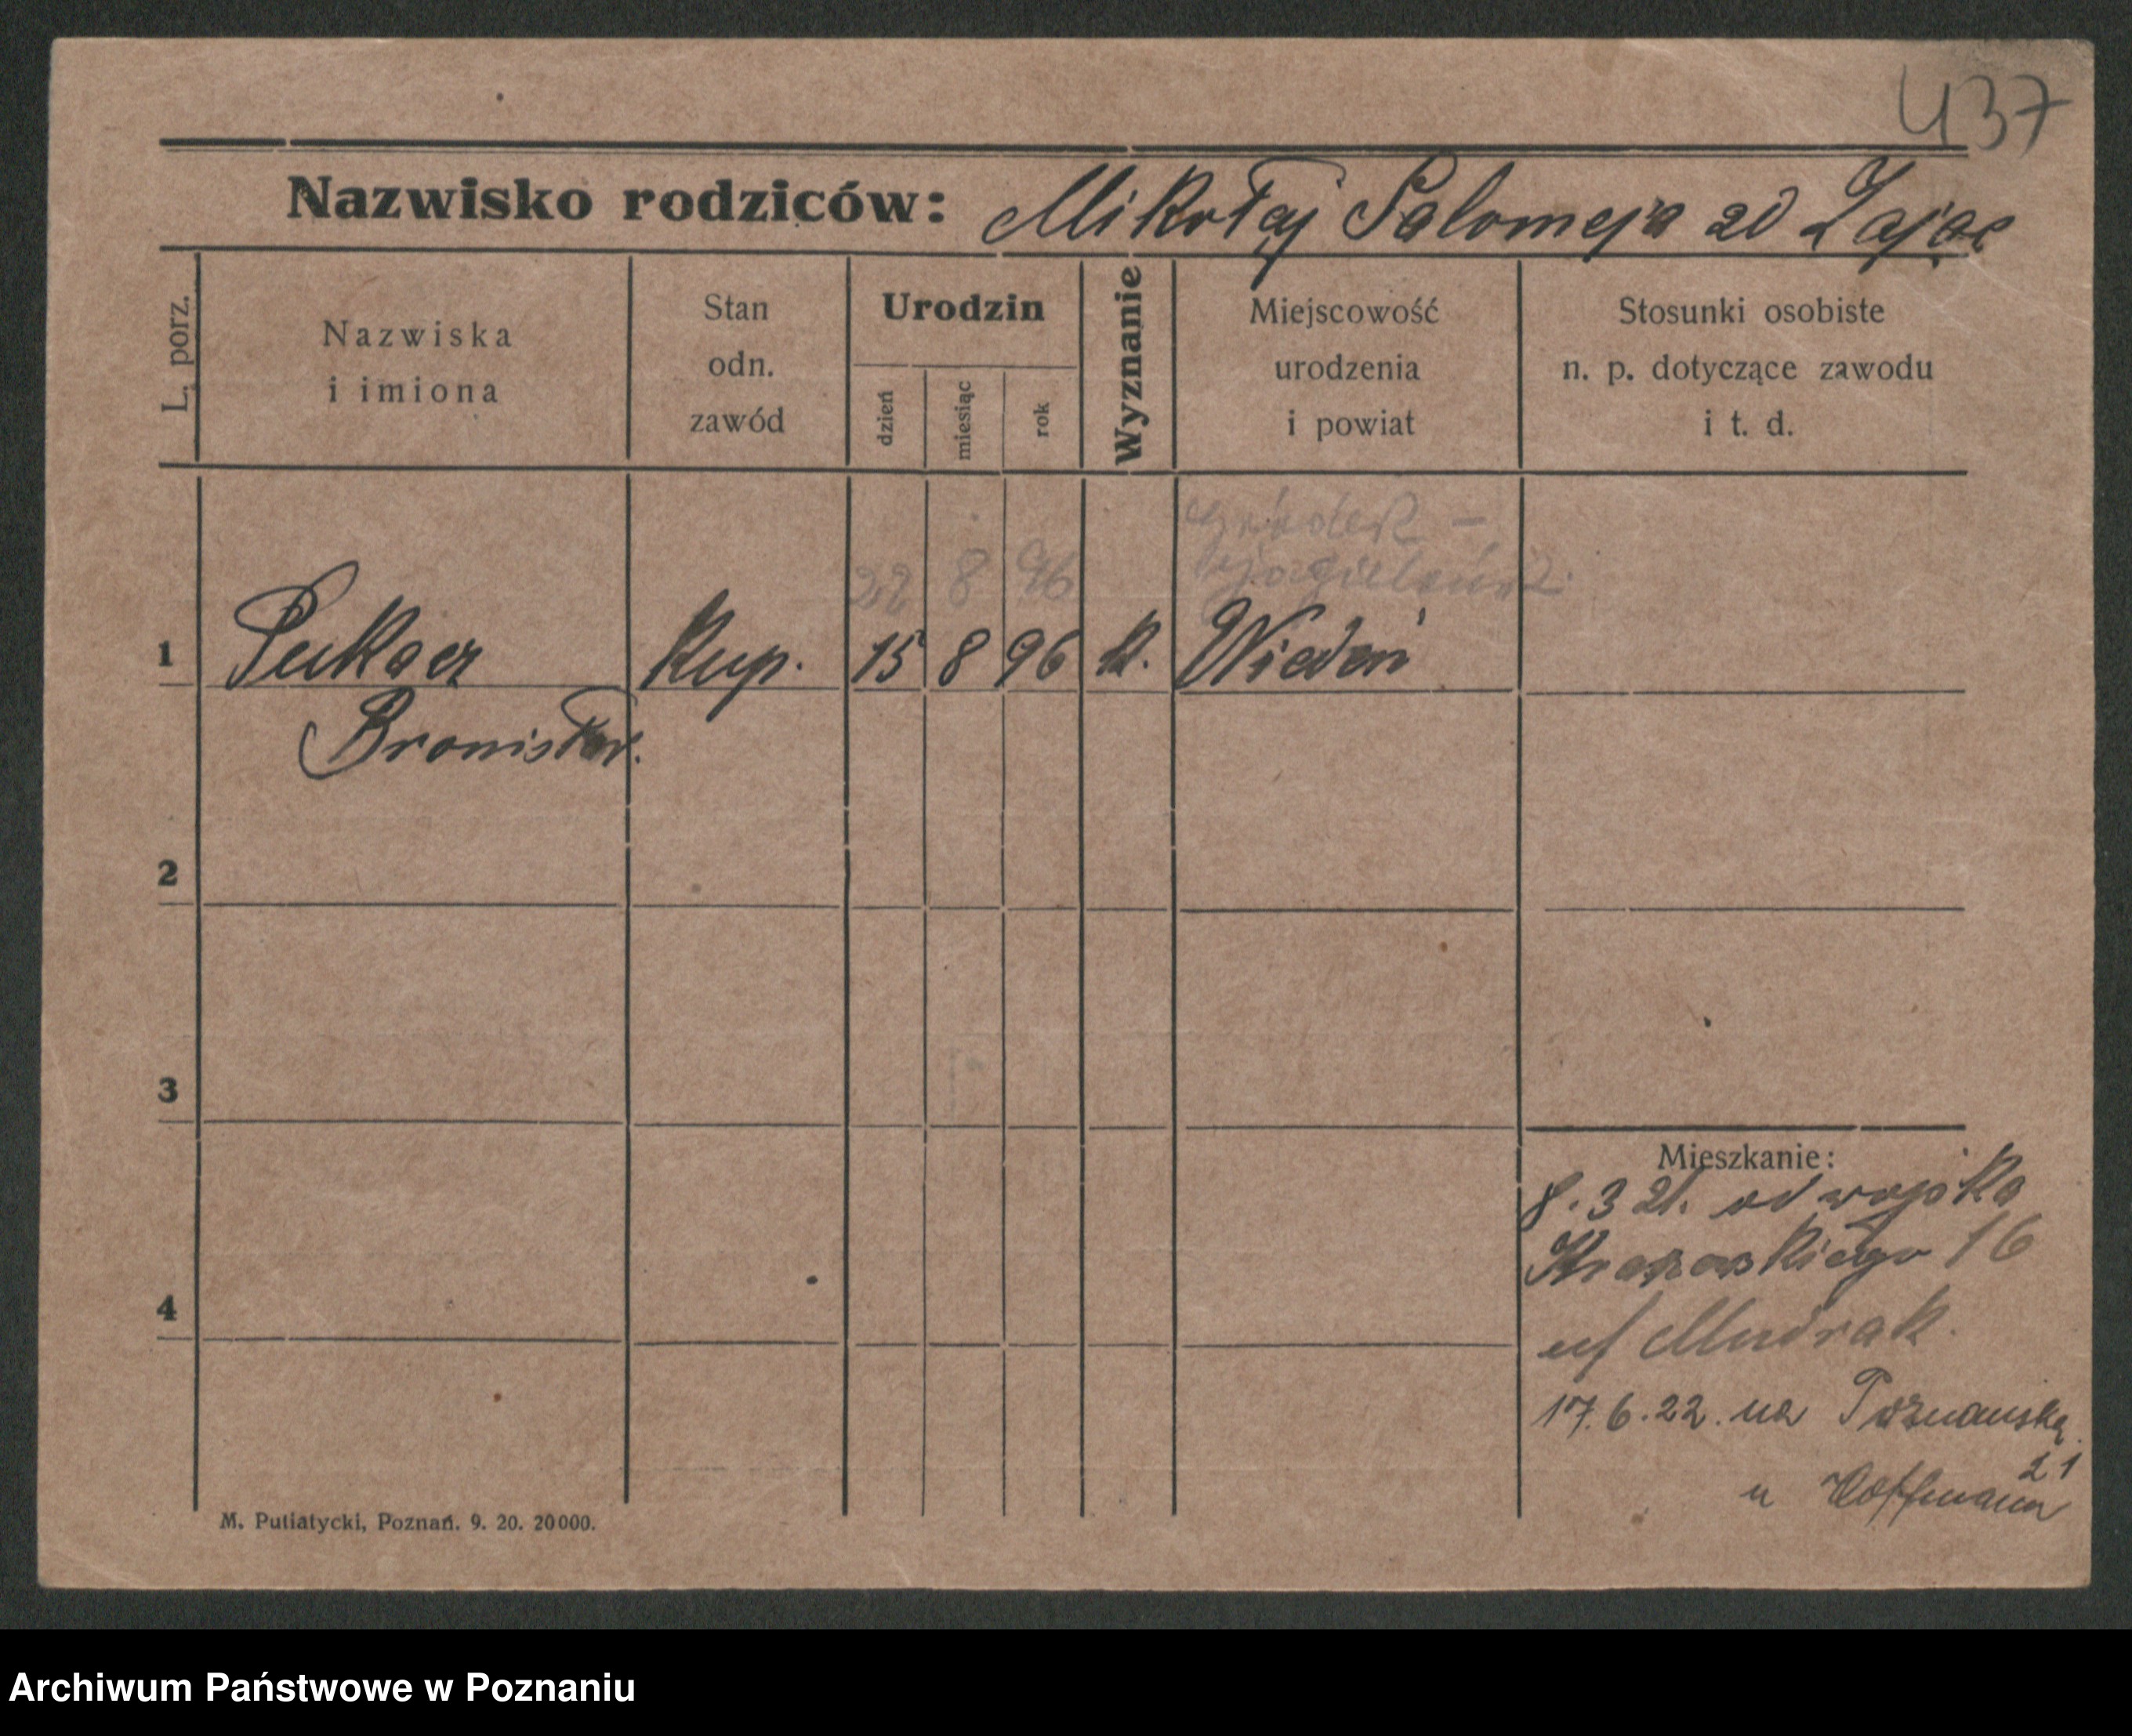 437
Nazwisko rodziców: Mikołaj Salomeja zd Zając
L. porz.
Nazwiska
i imiona
Stan
odn.
zawód
Urodzin
dzień
miesiąc
rok
Wyznanie
Miejscowość
urodzenia
i powiat
Stosunki osobiste
n. p. dotyczące zawodu
i t. d.
Gródek -
22 8 96 Jagielloński
1 Kup. 15 8 96 k. Wiedeń
Bronisław.
2
3
4
Mieszkanie:
8.3 21. od wojska
16
Mudrak
17.6.22. na Poznańską
21
u Hoffmann
M. Putiatycki, Poznań. 9. 20. 20000.
Archiwum Państwowe w Poznaniu